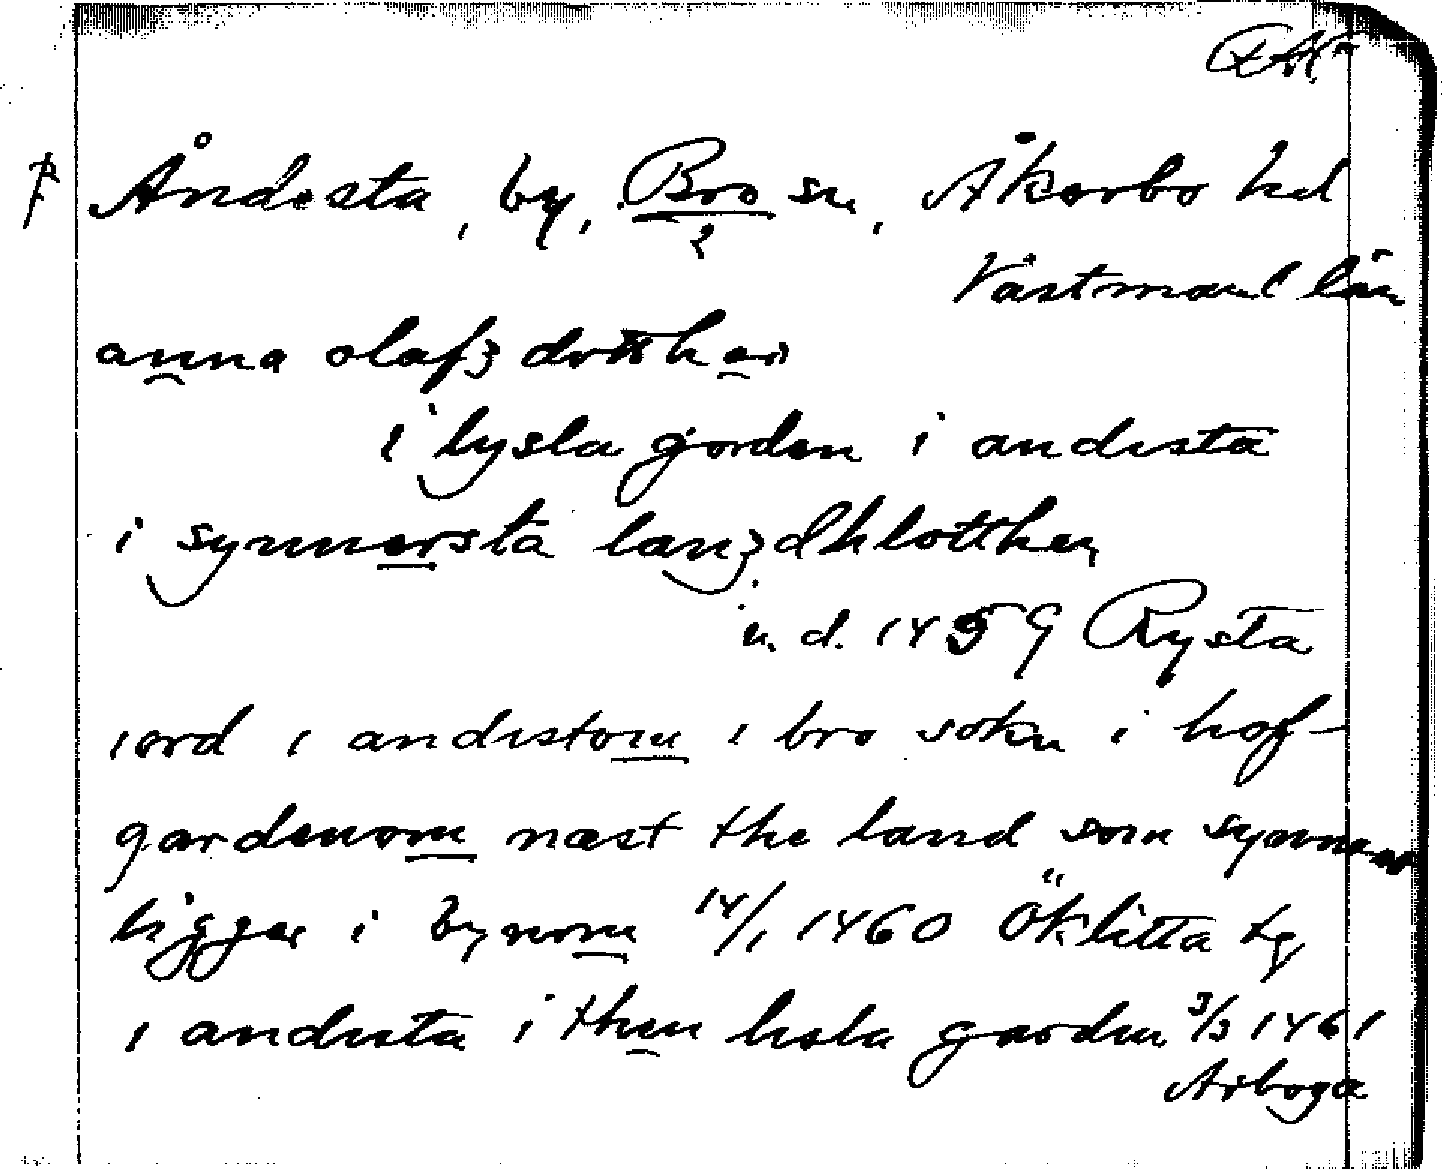 Åndesta, by, Bro sn, Åkerbo hd
2
Västmanl län
anna olafʒ dotther
i lysla gorden i andesta
i synnersta lanʒdhlotthen
u. d. 1459 Rysta
iord i andestom i bro sokn i hof-
gardenom næst the land som synners
ligger i bynom 14/1 1460 Öklitta tg
i andesta i then lisla garden 3/3 1461
Arboga